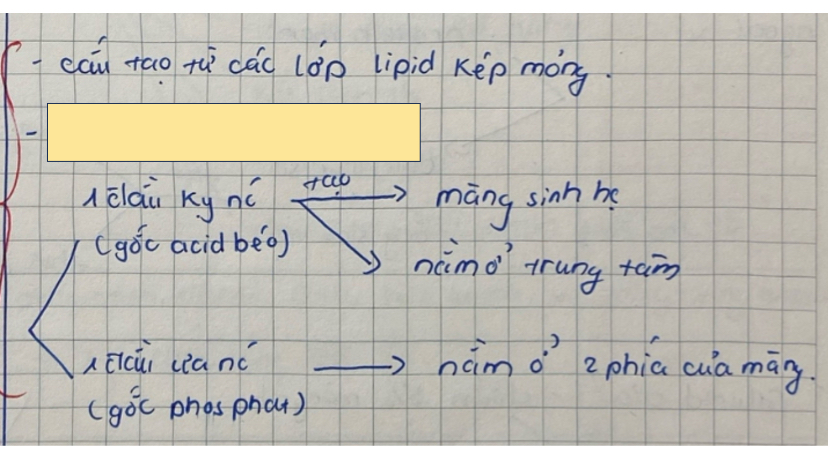 - cấu tạo từ các lớp lipid kép mỏng.
-
1 đầu kỵ nc tạo màng sinh học
(gốc acid béo)
nằm ở trung tâm
1 đầu ưa nc nằm ở 2 phía của màng.
(gốc phosphat)